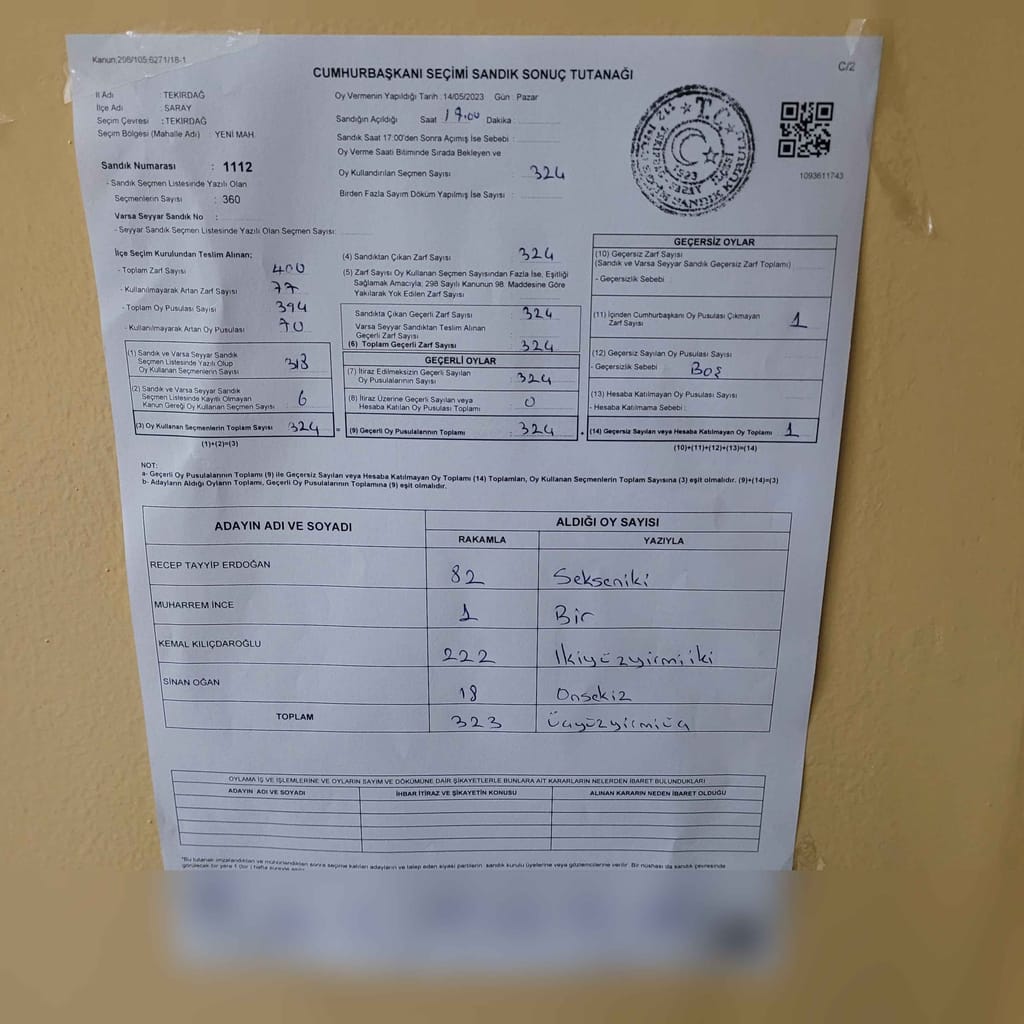 Kanun:298/105;6271/18-1
C/2
CUMHURBAŞKANI SEÇİMİ SANDIK SONUÇ TUTANAĞI
İl Adı : TEKİRDAĞ
İlçe Adı : SARAY
Seçim Çevresi : TEKİRDAĞ
Seçim Bölgesi (Mahalle Adı) : YENİ MAH.
Sandık Numarası : 1112
- Sandık Seçmen Listesinde Yazılı Olan
Seçmenlerin Sayısı : 360
Varsa Seyyar Sandık No :
- Seyyar Sandık Seçmen Listesinde Yazılı Olan Seçmen Sayısı:
Oy Vermenin Yapıldığı Tarih :14/05/2023 Gün : Pazar
Sandığın Açıldığı Saat 17.00 Dakika :
Sandık Saat 17:00'den Sonra Açılmış İse Sebebi :
Oy Verme Saati Bitiminde Sırada Bekleyen ve
Oy Kullandırılan Seçmen Sayısı : 324
Birden Fazla Sayım Döküm Yapılmış İse Sayısı :
T.C.
1923
1093611743
İlçe Seçim Kurulundan Teslim Alınan;
- Toplam Zarf Sayısı : 400
- Kullanılmayarak Artan Zarf Sayısı : 77
- Toplam Oy Pusulası Sayısı : 394
- Kullanılmayarak Artan Oy Pusulası : 70
(1) Sandık ve Varsa Seyyar Sandık
Seçmen Listesinde Yazılı Olup
Oy Kullanan Seçmenlerin Sayısı : 318
(2) Sandık ve Varsa Seyyar Sandık
Seçmen Listesinde Kayıtlı Olmayan
Kanun Gereği Oy Kullanan Seçmen Sayısı : 6
(3) Oy Kullanan Seçmenlerin Toplam Sayısı : 324
(1)+(2)=(3)
(4) Sandıktan Çıkan Zarf Sayısı : 324
(5) Zarf Sayısı Oy Kullanan Seçmen Sayısından Fazla İse, Eşitliği
Sağlamak Amacıyla; 298 Sayılı Kanunun 98. Maddesine Göre
Yakılarak Yok Edilen Zarf Sayısı :
Sandıkta Çıkan Geçerli Zarf Sayısı : 324
Varsa Seyyar Sandıktan Teslim Alınan
Geçerli Zarf Sayısı :
(6) Toplam Geçerli Zarf Sayısı : 324
GEÇERLİ OYLAR
(7) İtiraz Edilmeksizin Geçerli Sayılan
Oy Pusulalarının Sayısı : 324
(8) İtiraz Üzerine Geçerli Sayılan veya
Hesaba Katılan Oy Pusulası Toplamı : 0
= (9) Geçerli Oy Pusulalarının Toplamı : 324
GEÇERSİZ OYLAR
(10) Geçersiz Zarf Sayısı
(Sandık ve Varsa Seyyar Sandık Geçersiz Zarf Toplamı) :
- Geçersizlik Sebebi :
(11) İçinden Cumhurbaşkanı Oy Pusulası Çıkmayan
Zarf Sayısı : 1
(12) Geçersiz Sayılan Oy Pusulası Sayısı :
- Geçersizlik Sebebi : Boş
(13) Hesaba Katılmayan Oy Pusulası Sayısı :
- Hesaba Katılmama Sebebi :
+ (14) Geçersiz Sayılan veya Hesaba Katılmayan Oy Toplamı : 1
(10)+(11)+(12)+(13)=(14)
NOT:
a- Geçerli Oy Pusulalarının Toplamı (9) ile Geçersiz Sayılan veya Hesaba Katılmayan Oy Toplamı (14) Toplamları, Oy Kullanan Seçmenlerin Toplam Sayısına (3) eşit olmalıdır. (9)+(14)=(3)
b- Adayların Aldığı Oyların Toplamı, Geçerli Oy Pusulalarının Toplamına (9) eşit olmalıdır.
ADAYIN ADI VE SOYADI
ALDIĞI OY SAYISI
RAKAMLA YAZIYLA
RECEP TAYYİP ERDOĞAN 82 Sekseniki
MUHARREM İNCE 1 Bir
KEMAL KILIÇDAROĞLU 222 İkiyüzyirmiiki
SİNAN OĞAN 18 Onsekiz
TOPLAM 323 Üçyüzyirmiüç
OYLAMA İŞ VE İŞLEMLERİNE VE OYLARIN SAYIM VE DÖKÜMÜNE DAİR ŞİKAYETLERLE BUNLARA AİT KARARLARIN NELERDEN İBARET BULUNDUKLARI
ADAYIN ADI VE SOYADI İHBAR İTİRAZ VE ŞİKAYETİN KONUSU ALINAN KARARIN NEDEN İBARET OLDUĞU
*Bu tutanak imzalandıktan ve mühürlendikten sonra seçime katılan adayların ve talep eden siyasi partilerin sandık kurulu üyelerine veya gözlemcilerine verilir. Bir nüshası da sandık çevresinde
görülecek bir yere 1 (bir) hafta süreyle asılır.